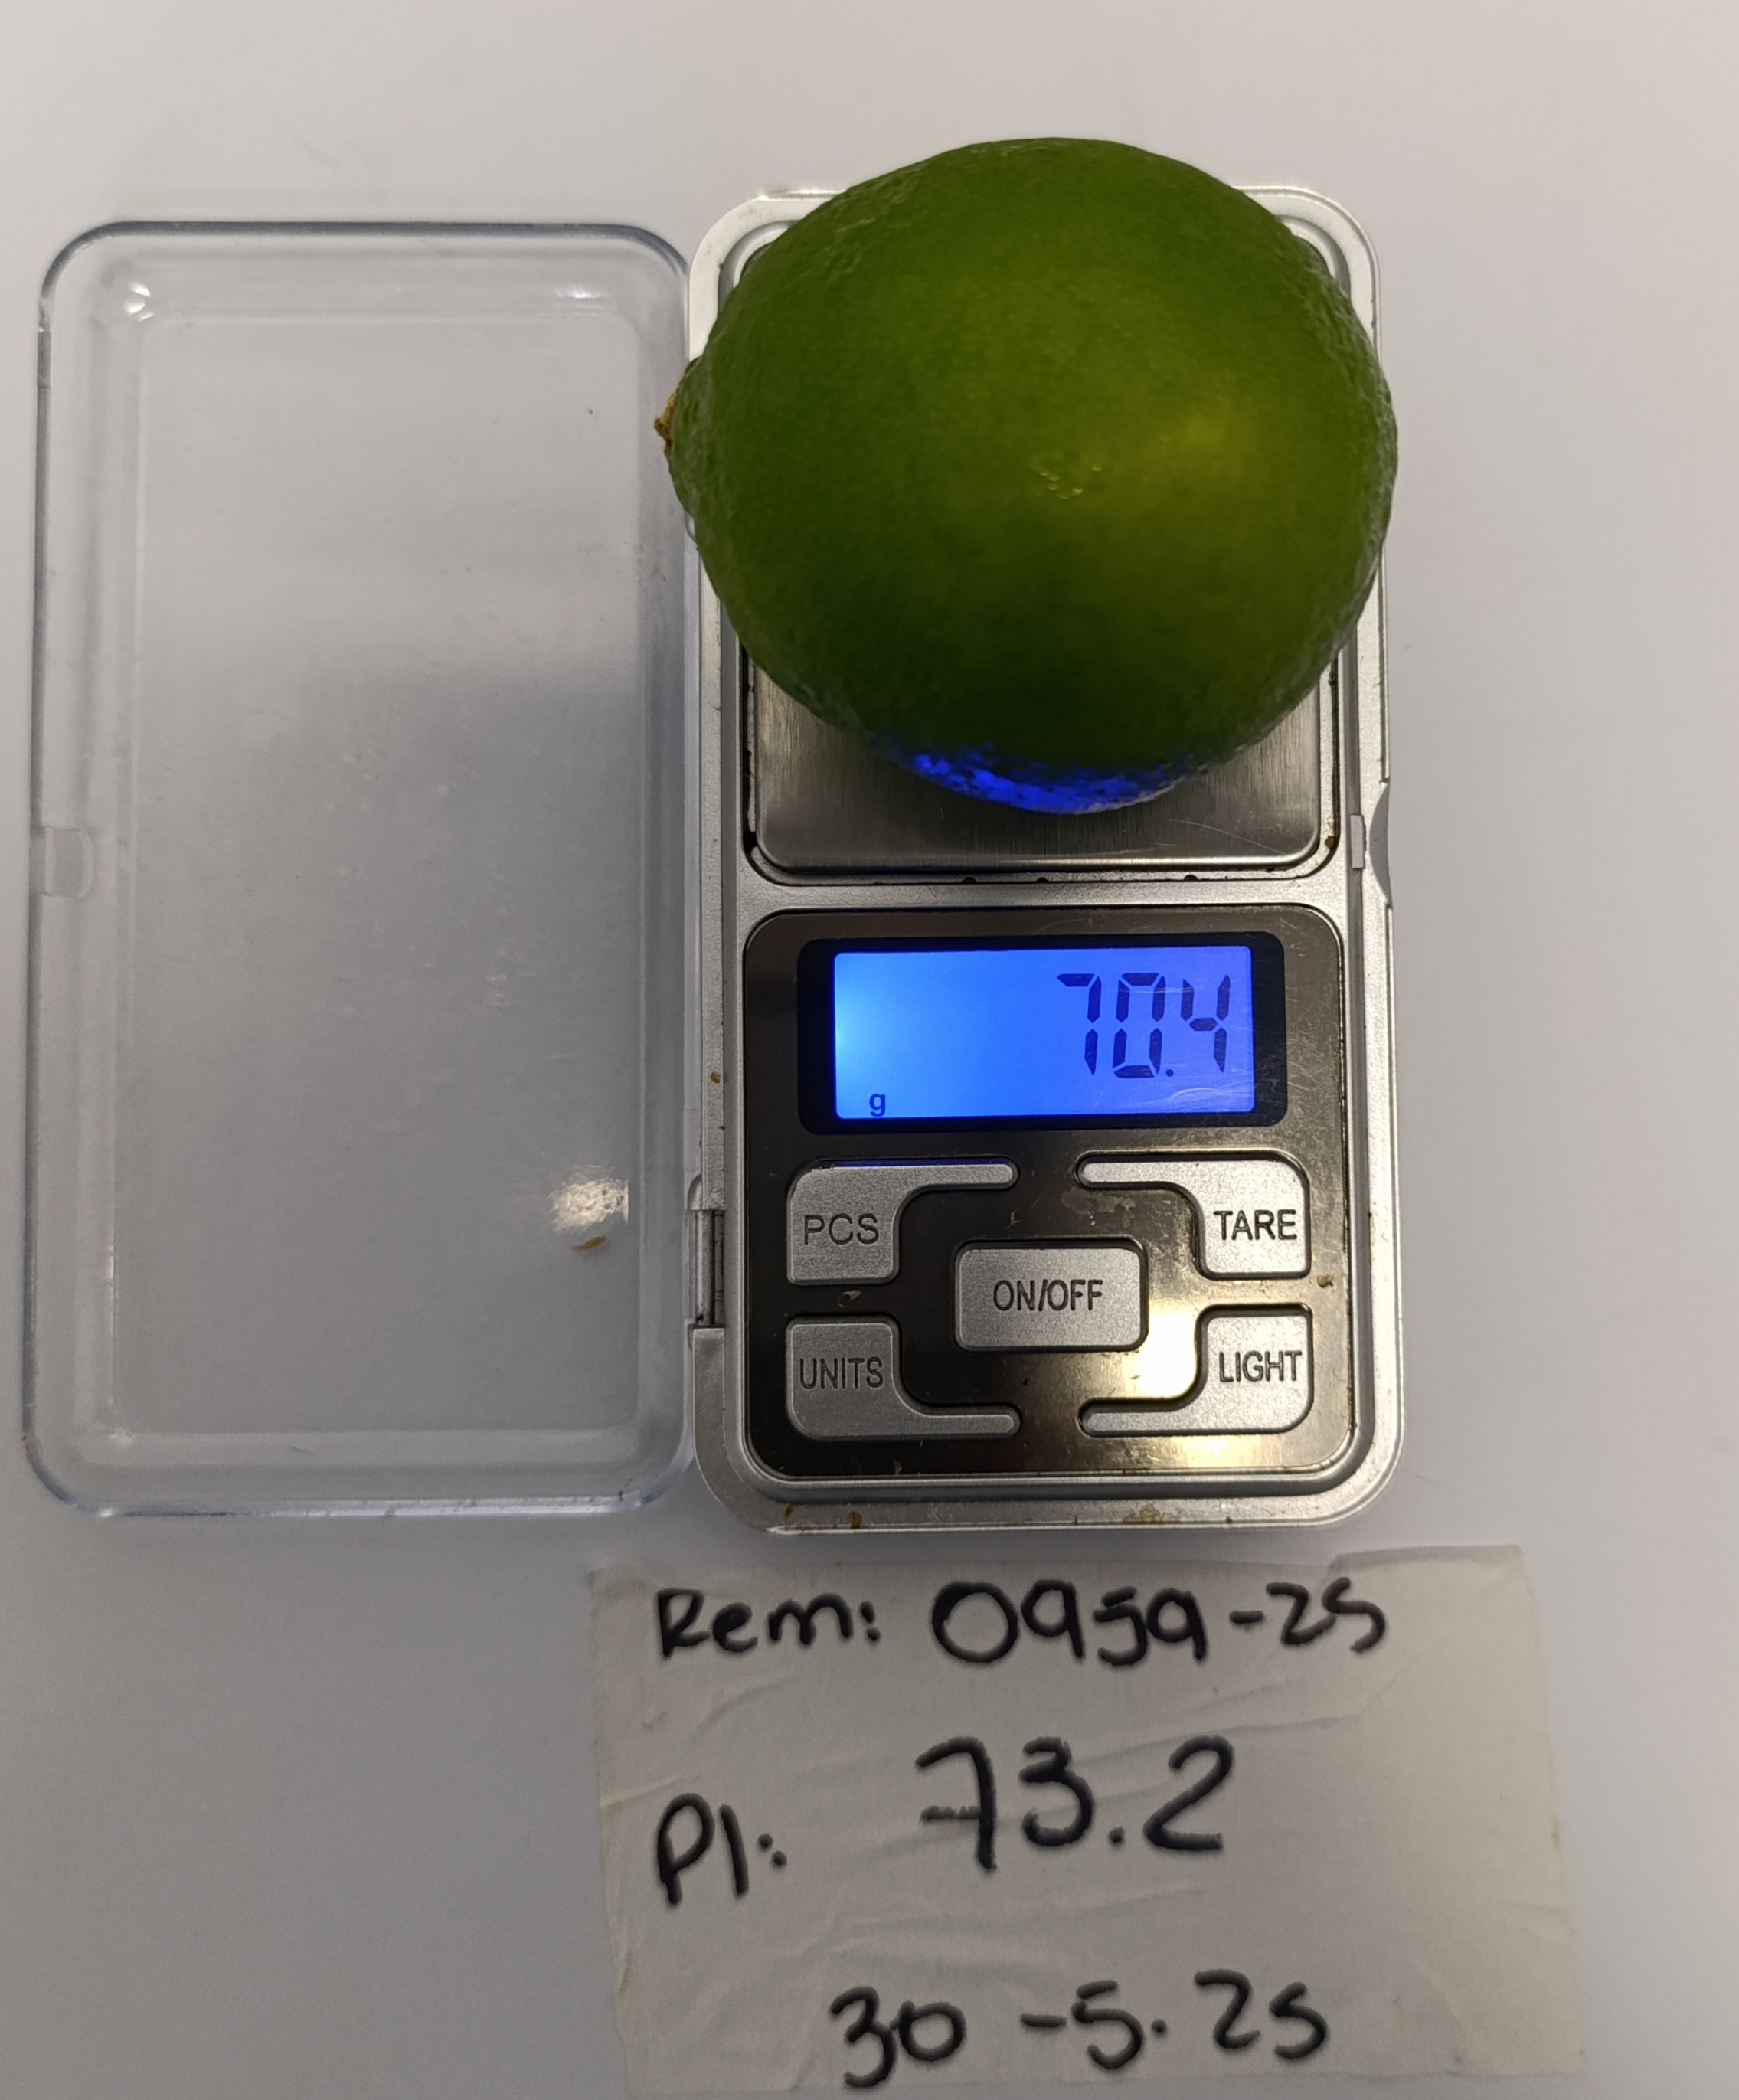 70.4
g
PCS
TARE
ON/OFF
UNITS
LIGHT
Rem: 0959-25
PI: 73.2
30-5.25